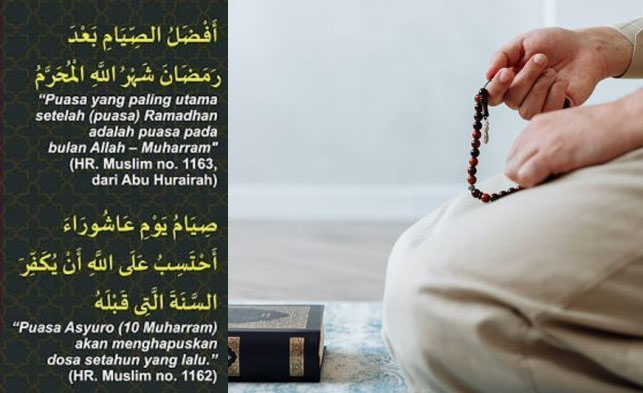 أَفْضَلُ الصِّيَامِ بَعْدَ
رَمَضَانَ شَهْرُ اللَّهِ الْمُحَرَّمُ
“Puasa yang paling utama
setelah (puasa) Ramadhan
adalah puasa pada
bulan Allah – Muharram"
(HR. Muslim no. 1163,
dari Abu Hurairah)
صِيَامُ يَوْمِ عَاشُورَاءَ
أَحْتَسِبُ عَلَى اللَّهِ أَنْ يُكَفِّرَ
السَّنَةَ الَّتِي قَبْلَهُ
“Puasa Asyuro (10 Muharram)
akan menghapuskan
dosa setahun yang lalu.”
(HR. Muslim no. 1162)